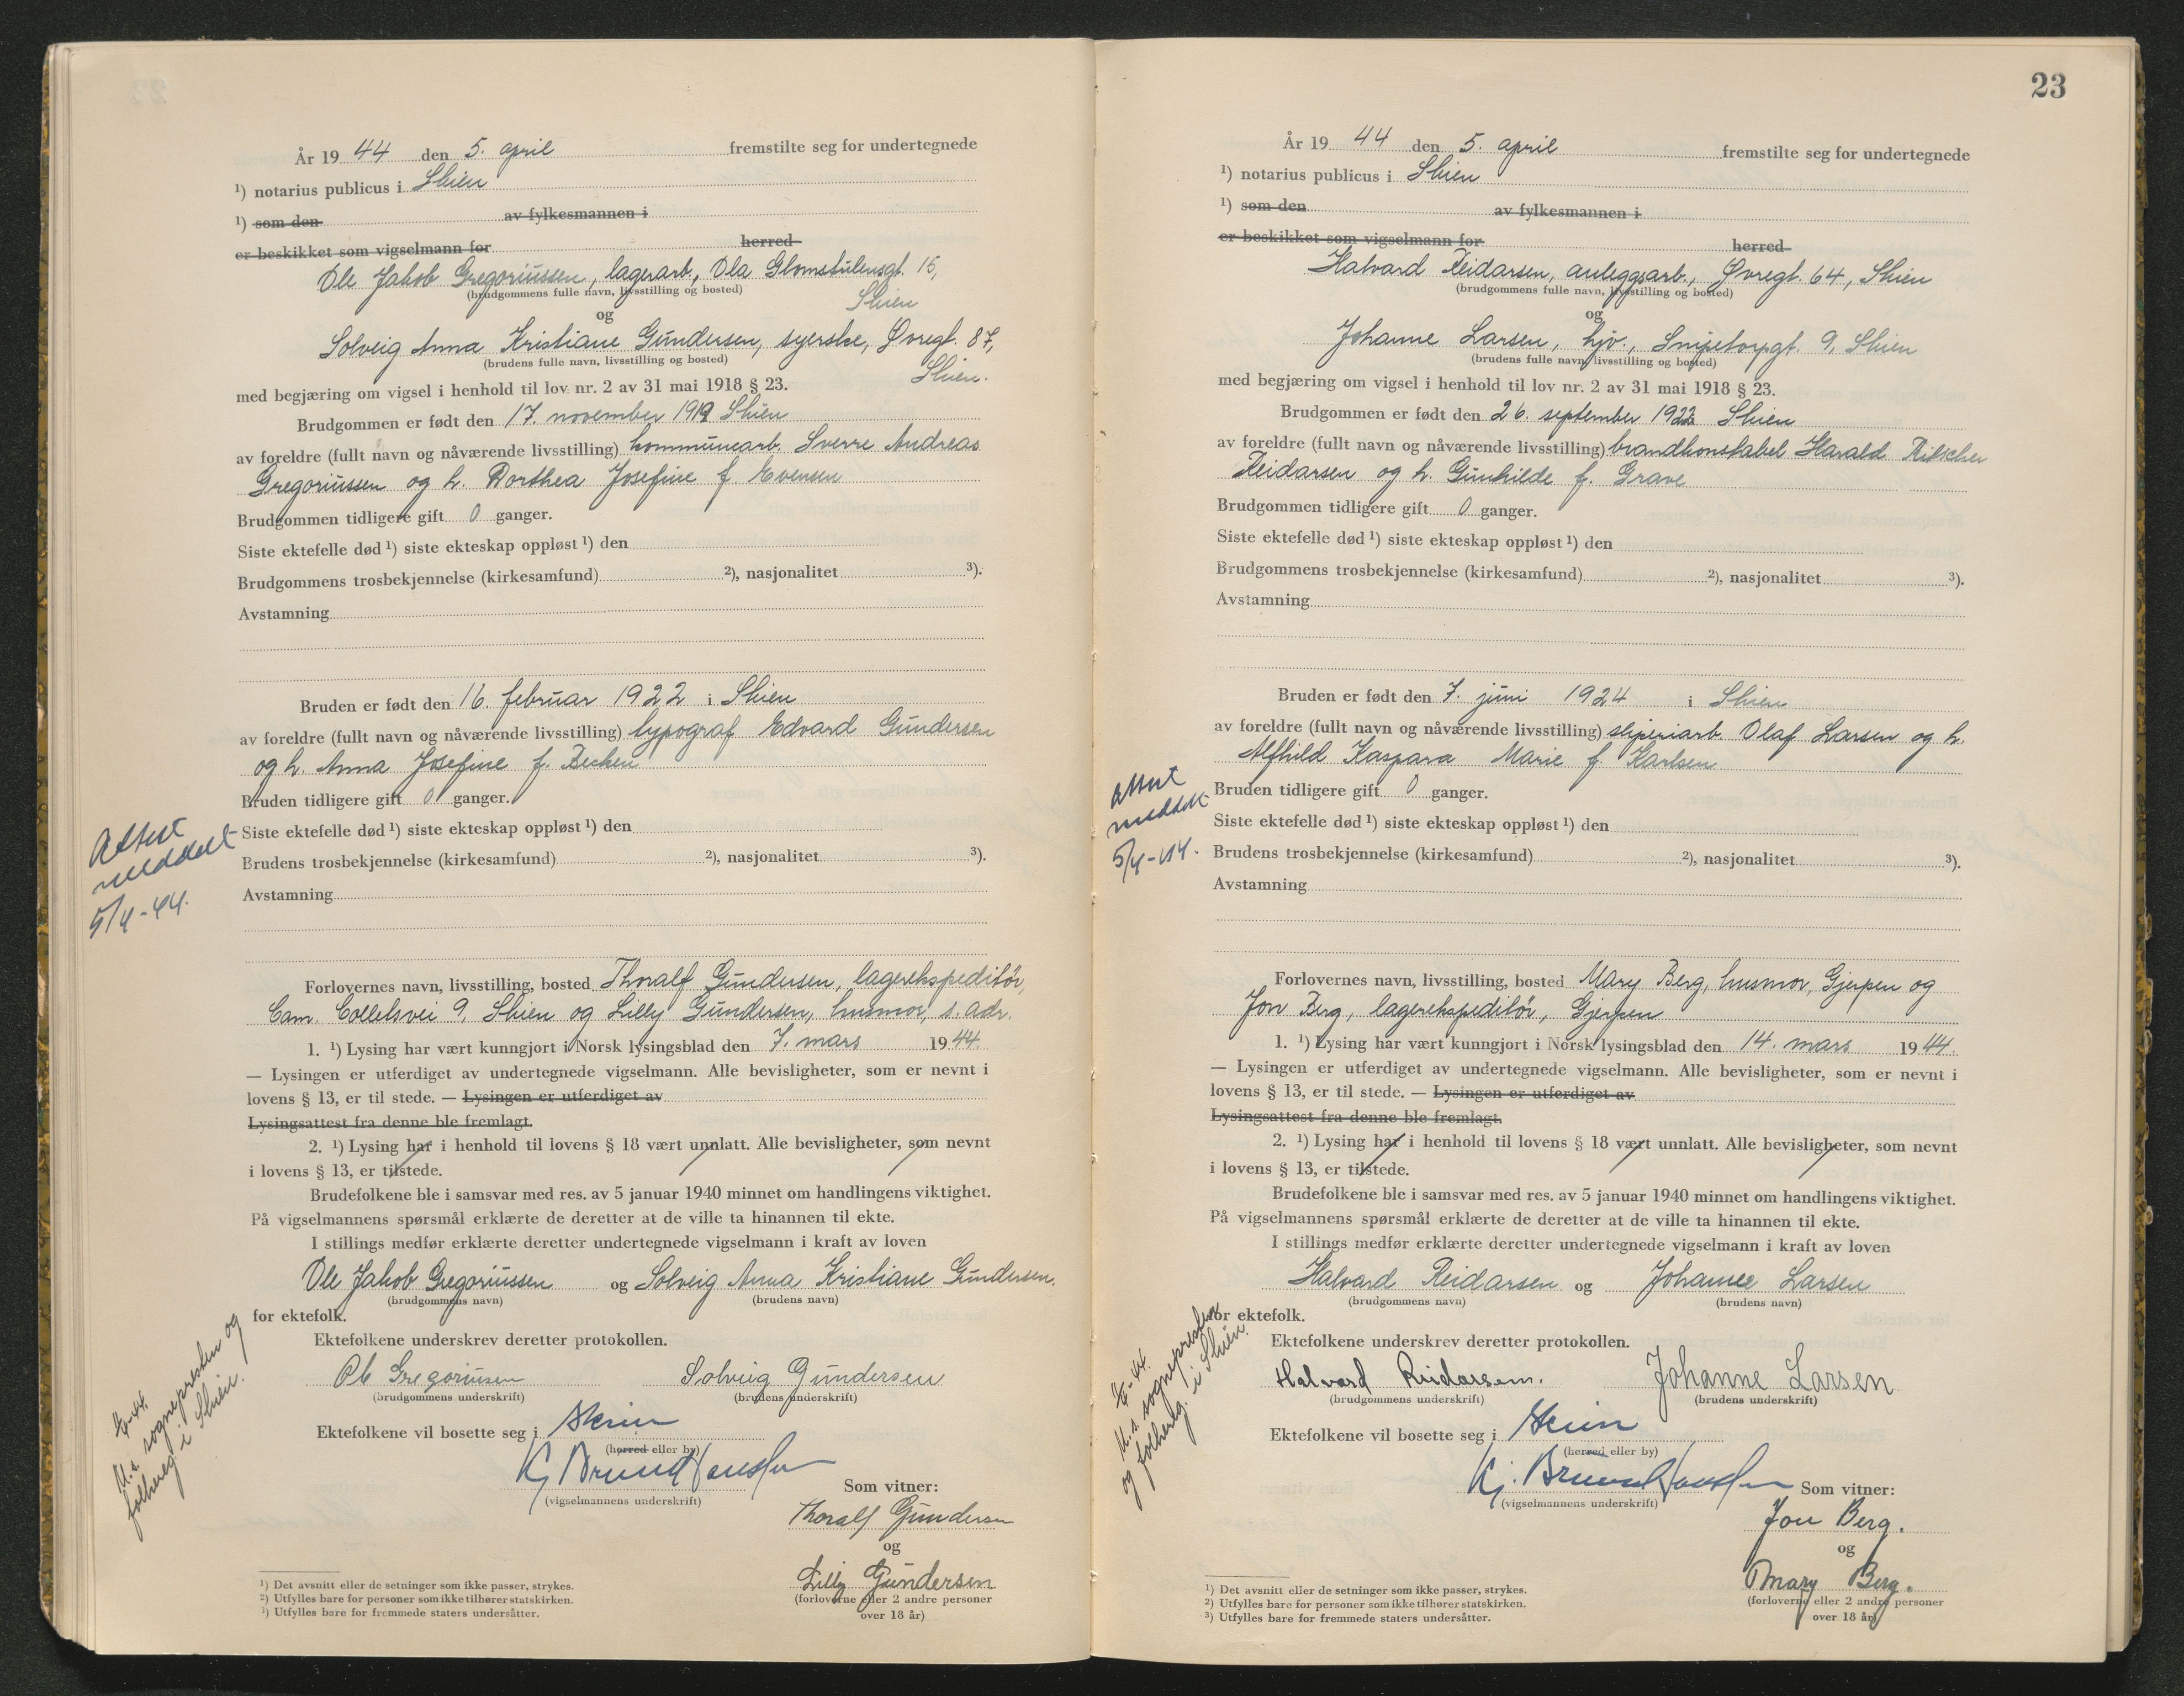 År 19 44 den 5. april fremstilte seg for undertegnede
¹) notarius publicus i Skien
¹) som den av fylkesmannen i
er beskikket som vigselmann for herred
Ole Jakob Gregoriussen, lagerarb., Ola Glomstulensgt. 15,
(brudgommens fulle navn, livsstilling og bosted)
Skien
og
Solveig Anna Kristiane Gundersen, syerske, Øvregt. 87,
(brudens fulle navn, livsstilling og bosted)
Skien.
med begjæring om vigsel i henhold til lov nr. 2 av 31 mai 1918 § 23.
Brudgommen er født den 17. november 1919 Skien
av foreldre (fullt navn og nåværende livsstilling) kommunearb. Sverre Andreas
Gregoriussen og h. Dorthea Josefine f. Evensen
Brudgommen tidligere gift 0 ganger.
Siste ektefelle død ¹) siste ekteskap oppløst ¹) den
Brudgommens trosbekjennelse (kirkesamfund) ²), nasjonalitet ³).
Avstamning
Bruden er født den 16. februar 1922 i Skien
av foreldre (fullt navn og nåværende livsstilling) typograf Edvard Gundersen
og h. Anna Josefine f.
Bruden tidligere gift 0 ganger.
Siste ektefelle død ¹) siste ekteskap oppløst ¹) den
Brudens trosbekjennelse (kirkesamfund) ²), nasjonalitet ³).
Avstamning
Attest
meddelt
5/4-44.
Forlovernes navn, livsstilling, bosted Thoralf Gundersen, lagerekspeditør,
Cam. Colletsvei 9, Skien og Lilly Gundersen, husmor, s. adr.
1. ¹) Lysing har vært kunngjort i Norsk lysingsblad den 7. mars 1944.
— Lysingen er utferdiget av undertegnede vigselmann. Alle bevisligheter, som er nevnt i
lovens § 13, er til stede. — Lysingen er utferdiget av
Lysingsattest fra denne ble fremlagt.
2. ¹) Lysing har i henhold til lovens § 18 vært unnlatt. Alle bevisligheter, som nevnt
i lovens § 13, er tilstede.
Brudefolkene ble i samsvar med res. av 5 januar 1940 minnet om handlingens viktighet.
På vigselmannens spørsmål erklærte de deretter at de ville ta hinannen til ekte.
I stillings medfør erklærte deretter undertegnede vigselmann i kraft av loven
Ole Jakob Gregoriussen og Solveig Anna Kristiane Gundersen.
(brudgommens navn) (brudens navn)
for ektefolk.
Ektefolkene underskrev deretter protokollen.
Ole Gregoriussen Solveig Gundersen
(brudgommens underskrift) (brudens underskrift)
Ektefolkene vil bosette seg i Skien
(herred eller by)
(vigselmannens underskrift)
Som vitner:
Thoralf Gundersen
og
Lilly Gundersen
(forloverne eller 2 andre personer
over 18 år)
M. s. sognepresten og
folkereg. i Skien.
¹) Det avsnitt eller de setninger som ikke passer, strykes.
²) Utfylles bare for personer som ikke tilhører statskirken.
³) Utfylles bare for fremmede staters undersåtter.
23
År 19 44 den 5. april fremstilte seg for undertegnede
¹) notarius publicus i Skien
¹) som den av fylkesmannen i
er beskikket som vigselmann for herred
Halvard Reidarsen, anleggsarb., Øvregt. 64, Skien
(brudgommens fulle navn, livsstilling og bosted)
og
Johanne Larsen, hjv., Snipetorpgt. 9, Skien
(brudens fulle navn, livsstilling og bosted)
med begjæring om vigsel i henhold til lov nr. 2 av 31 mai 1918 § 23.
Brudgommen er født den 26. september 1922 Skien
av foreldre (fullt navn og nåværende livsstilling) brandkonstabel Harald
Reidarsen og h. Gunhilde f. Grave
Brudgommen tidligere gift 0 ganger.
Siste ektefelle død ¹) siste ekteskap oppløst ¹) den
Brudgommens trosbekjennelse (kirkesamfund) ²), nasjonalitet ³).
Avstamning
Bruden er født den 7. juni 1924 i Skien
av foreldre (fullt navn og nåværende livsstilling) sliperiarb. Olaf Larsen og h.
Alfhild Kaspara Marie f. Karlsen
Bruden tidligere gift 0 ganger.
Siste ektefelle død ¹) siste ekteskap oppløst ¹) den
Brudens trosbekjennelse (kirkesamfund) ²), nasjonalitet ³).
Avstamning
Attest
meddelt
5/4-44.
Forlovernes navn, livsstilling, bosted Mary Berg, husmor, Gjerpen og
Jon Berg, lagerekspeditør, Gjerpen
1. ¹) Lysing har vært kunngjort i Norsk lysingsblad den 14. mars 1944.
— Lysingen er utferdiget av undertegnede vigselmann. Alle bevisligheter, som er nevnt i
lovens § 13, er til stede. — Lysingen er utferdiget av
Lysingsattest fra denne ble fremlagt.
2. ¹) Lysing har i henhold til lovens § 18 vært unnlatt. Alle bevisligheter, som nevnt
i lovens § 13, er tilstede.
Brudefolkene ble i samsvar med res. av 5 januar 1940 minnet om handlingens viktighet.
På vigselmannens spørsmål erklærte de deretter at de ville ta hinannen til ekte.
I stillings medfør erklærte deretter undertegnede vigselmann i kraft av loven
Halvard Reidarsen og Johanne Larsen
(brudgommens navn) (brudens navn)
for ektefolk.
Ektefolkene underskrev deretter protokollen.
Halvard Reidarsen. Johanne Larsen
(brudgommens underskrift) (brudens underskrift)
Ektefolkene vil bosette seg i Skien
(herred eller by)
(vigselmannens underskrift)
Som vitner:
Jon Berg.
og
Mary Berg.
(forloverne eller 2 andre personer
over 18 år)
M. s. sognepresten
og folkereg. i Skien.
¹) Det avsnitt eller de setninger som ikke passer, strykes.
²) Utfylles bare for personer som ikke tilhører statskirken.
³) Utfylles bare for fremmede staters undersåtter.